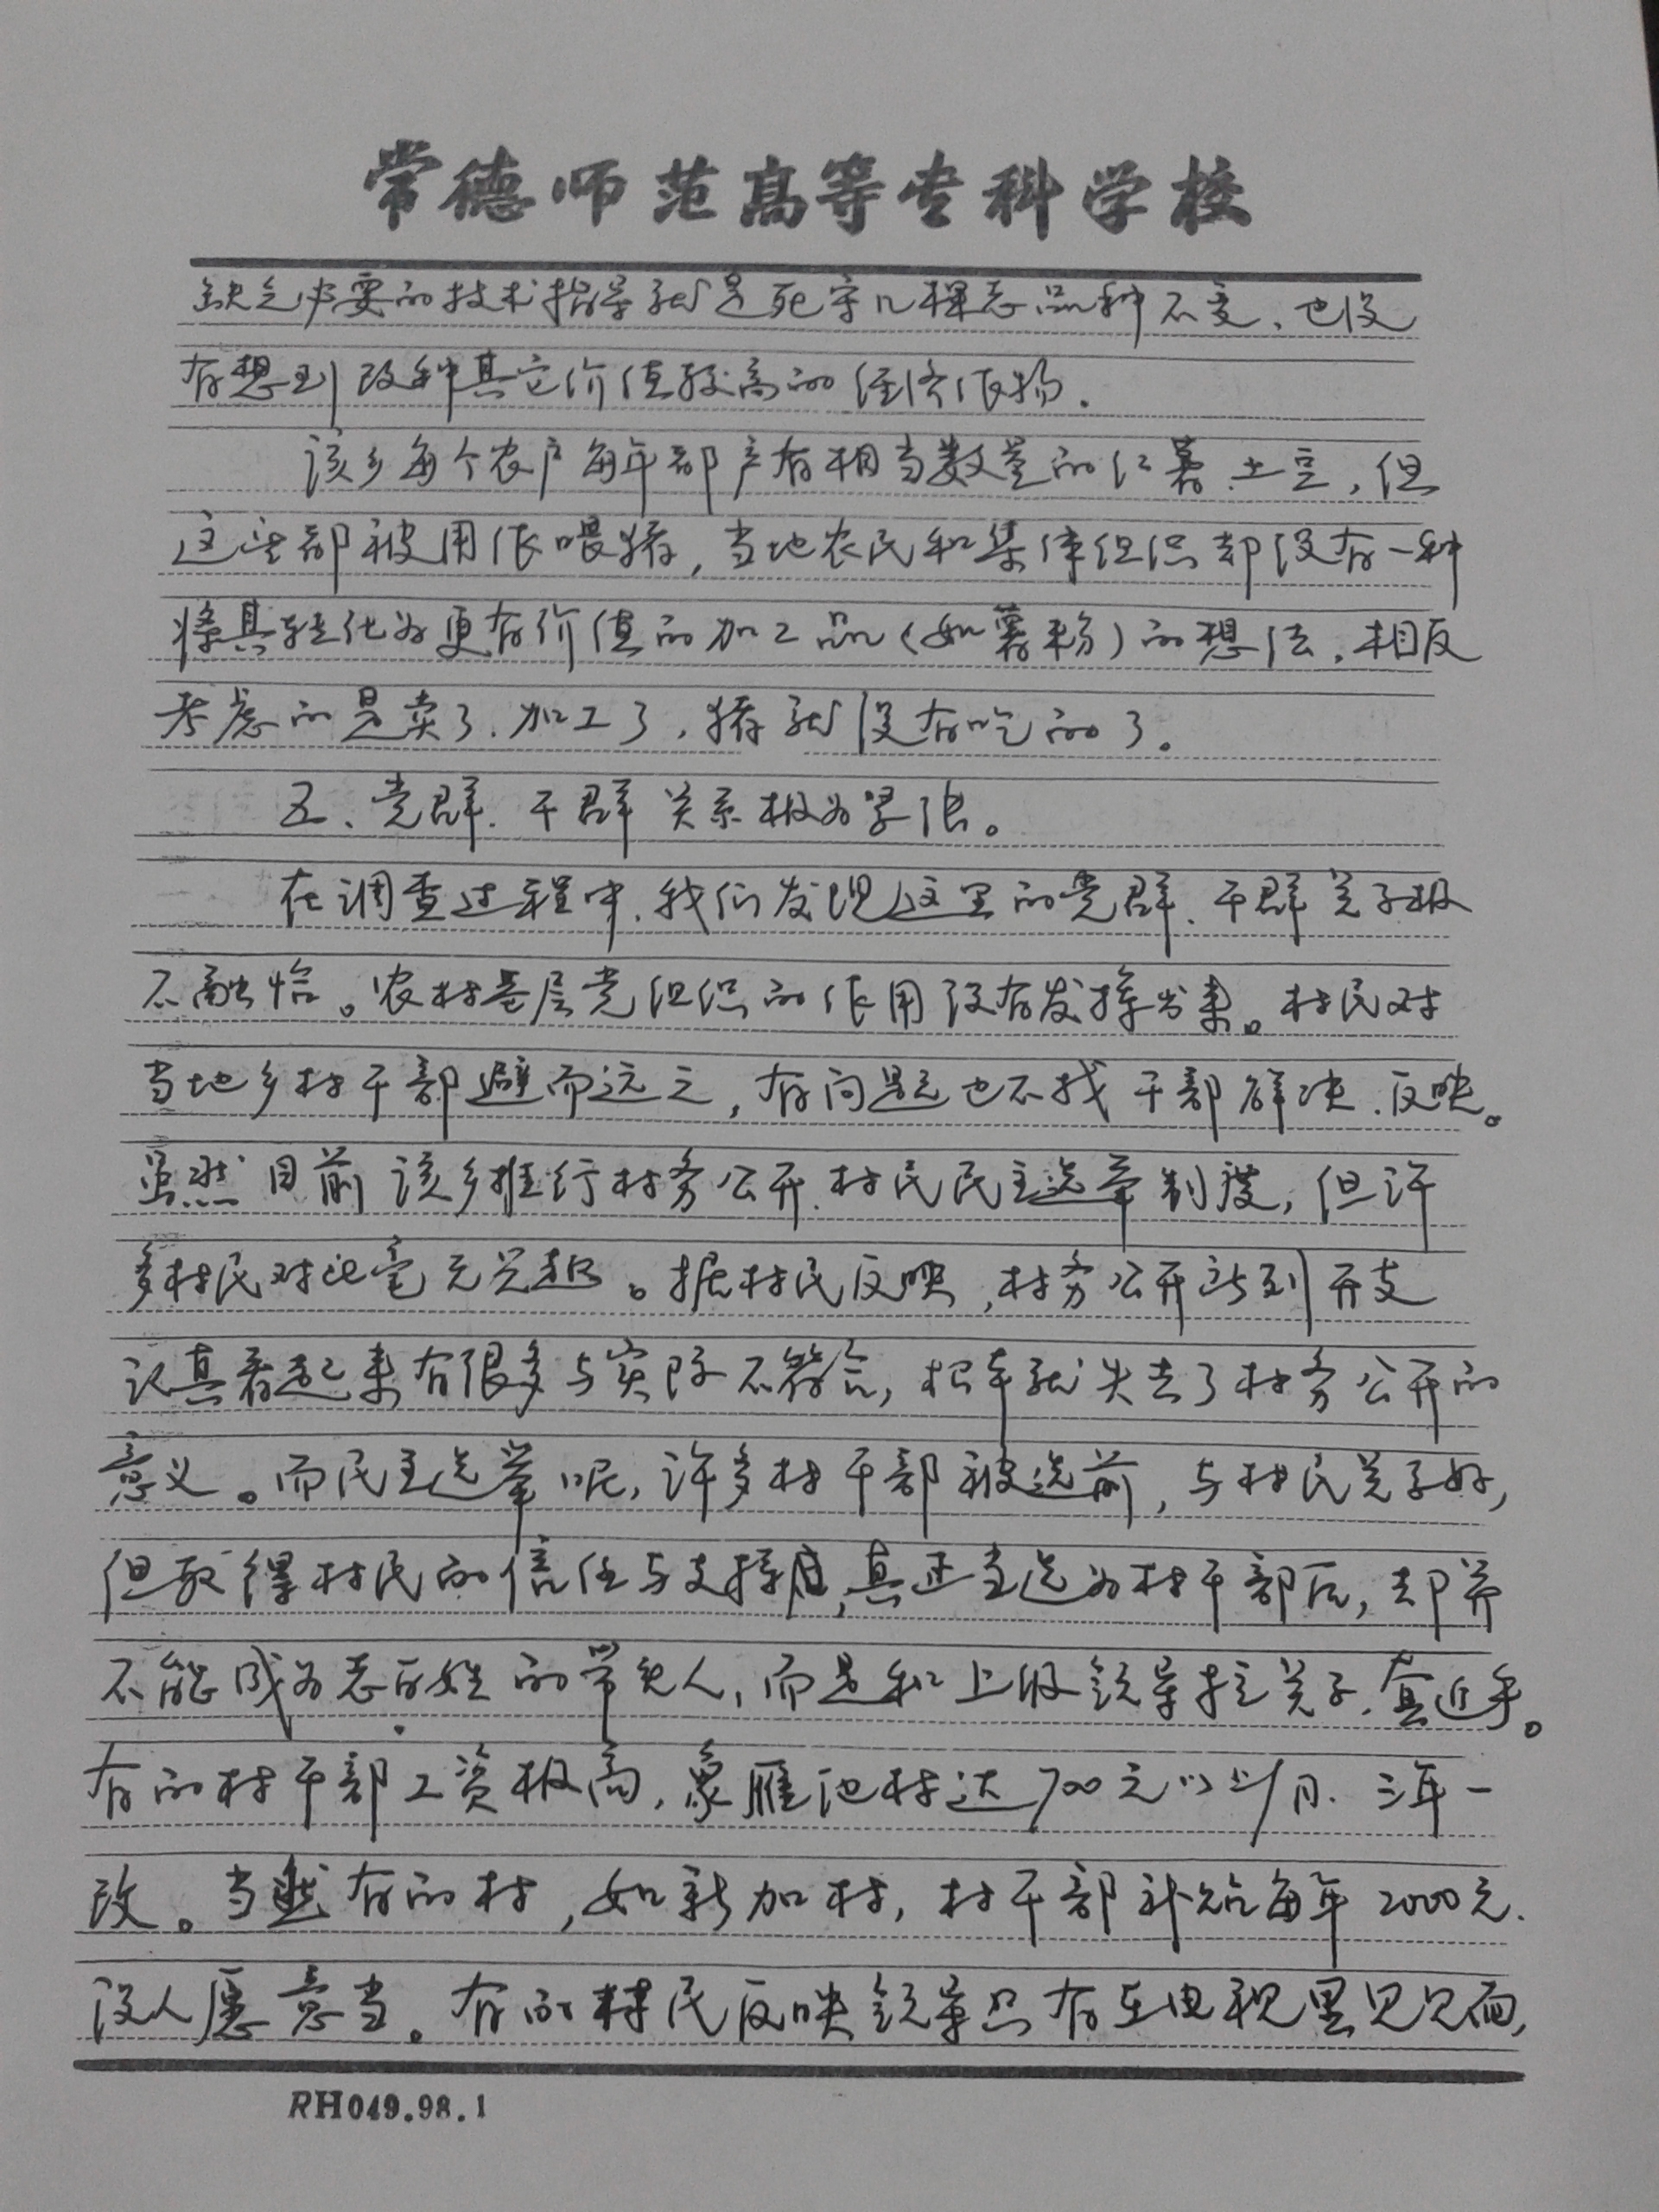 常德师范高等专科学校
缺乏必要的技术指导就是死守几种老品种不变、也没
有想到改种其它价值较高的经济作物.
该乡每个农户每年都产有相当数量的红薯、土豆，但
这些都被用作喂猪，当地农民和集体组织却没有一种
将其转化为更有价值的加工品（如薯粉）的想法，相反
考虑的是卖了、加工了，猪就没有吃的了。
五、党群、干群关系极为紧张。
在调查过程中，我们发现这里的党群、干群关系极
不融恰。农村基层党组织的作用没有发挥出来。村民对
当地乡村干部避而远之，有问题也不找干部解决、反映。
虽然目前该乡推行村务公开、村民民主选举制度，但许
多村民对此毫无兴趣。据村民反映，村务公开到开支
认真看起来有很多与实际不符合，根本就失去了村务公开的
意义。而民主选举呢，许多村干部被选前，与村民关系好，
但取得村民的信任与支持，真正当选为村干部后，却并
不能成为老百姓的带头人，而是和上级领导拉关系、套近乎。
有的村干部工资极高，象雁池村达700元以上/月、三年一
改。当然有的村，如新加村，村干部补贴每年2000元、
没人愿意当。有的村民反映领导只有在电视里见见面，
RH049.98.1